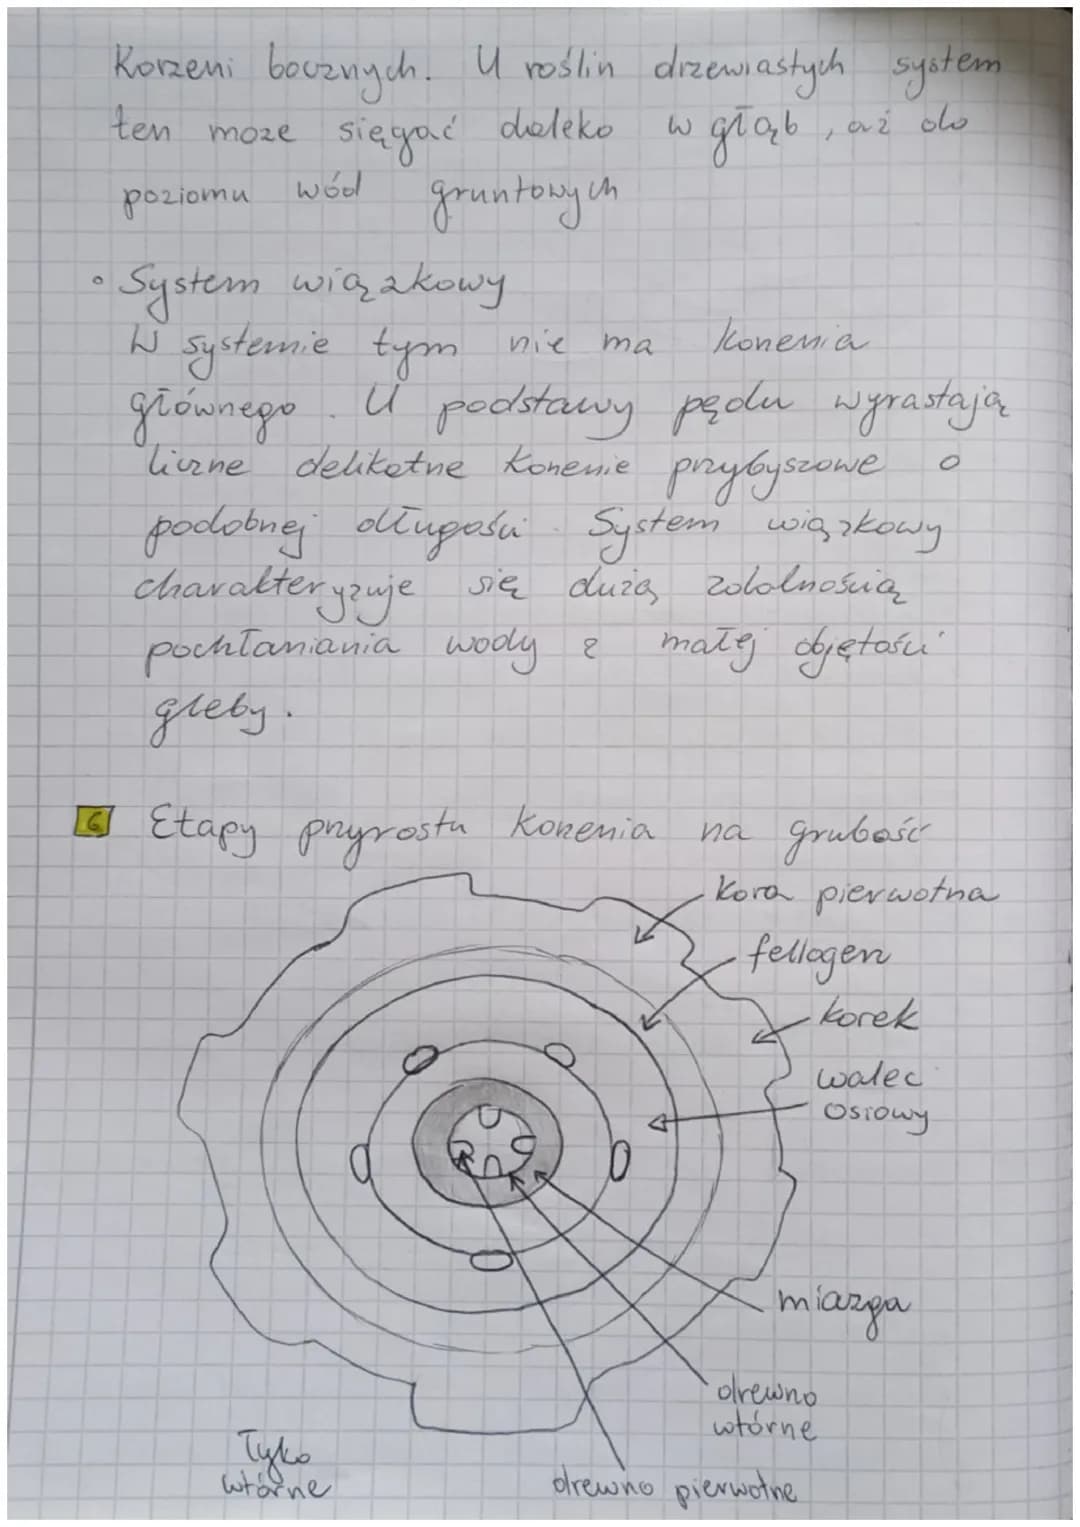 Korzeni bocznych. U roślin drzewiastych system
ten może sięgać daleko w głąb, aż do
poziomu wód gruntowych
• System wiązkowy
W systemie tym nie ma korzenia
głównego. U podstawy pędu wyrastają
liczne delikatne korzenie przybyszowe o
podobnej długości. System wiązkowy
charakteryzuje się dużą zdolnością
pochłaniania wody z małej objętości
gleby.
6 Etapy przyrostu korzenia na grubość
kora pierwotna
fellogen
korek
walec
osiowy
miazga
drewno
wtórne
Łyko
wtórne
drewno pierwotne